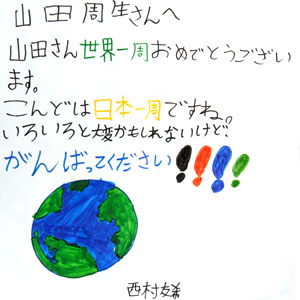 山田周生さんへ
山田さん世界一周おめでとうござい
ます。
こんどは日本一周ですね。
いろいろと大変かもしれないけど、
がんばってください!!!!
西村友希